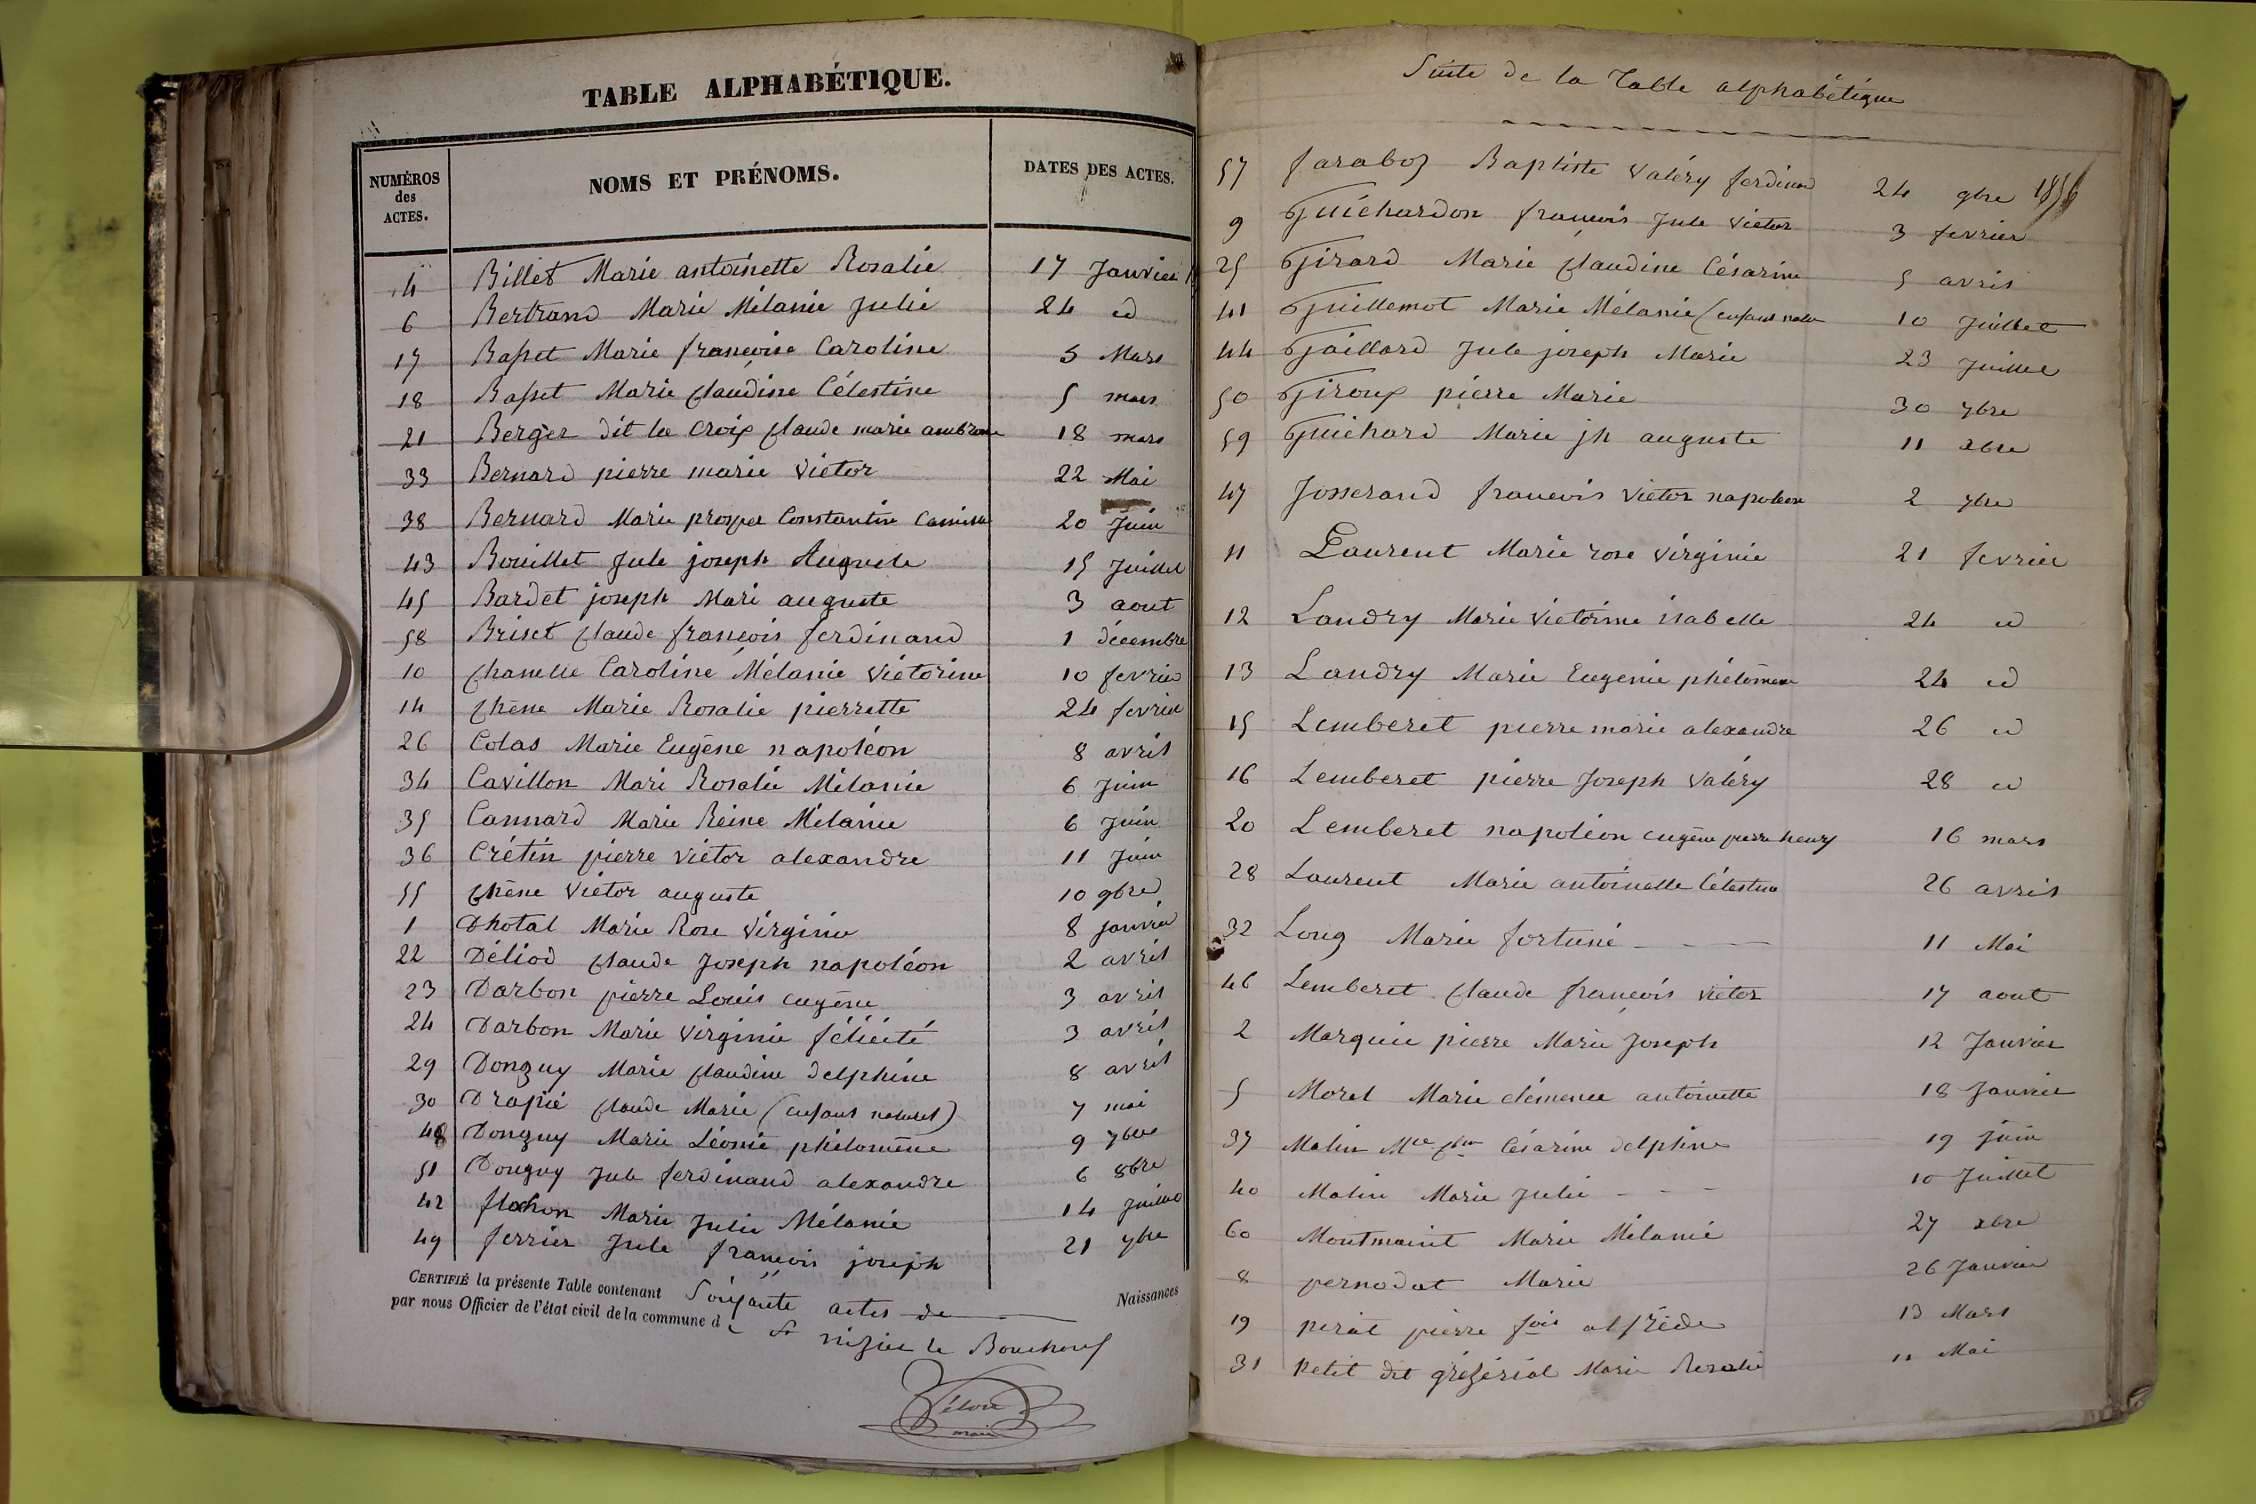 TABLE ALPHABÉTIQUE.
NUMÉROS des ACTES. NOMS ET PRÉNOMS. DATES DES ACTES.
4 Billet Marie antoinette Rosalie 17 Janvier
6 Bertrand Marie Mélanie Julie 24 id
17 Basset Marie françoise Caroline 5 Mars
18 Basset Marie Claudine Célestine 5 mars
21 Berger dit la Croix Claude marie ambroise 18 mars
33 Bernard pierre marie Victor 22 Mai
38 Bernard Marie prosper Constantin Camille 20 Juin
43 Bouillet Jule joseph Auguste 15 Juillet
45 Bardet joseph Mari auguste 3 aout
58 Briset Claude françois ferdinand 1 décembre
10 Caroline Mélanie Victorine 10 fevrier
14 Chêne Marie Rosalie pierrette 24 fevrier
26 Colas Marie Eugène napoléon 8 avril
34 Cavillon Mari Rosalie Mélanie 6 Juin
35 Cannard Marie Reine Mélanie 6 Juin
36 Crétin pierre victor alexandre 11 Juin
55 Chêne Victor auguste 10 9bre
1 Dhotal Marie Rose Virginie 8 janvier
22 Déliod Claude Joseph napoléon 2 avril
23 Darbon pierre Louis eugène 3 avril
24 Darbon Marie Virginie félicité 3 avril
29 Donguy Marie Claudine Delphine 8 avril
30 Drapié Claude Marie (enfant naturel) 7 mai
48 Donguy Marie Léonie philomène 9 7bre
51 Donguy Jule ferdinand alexandre 6 8bre
42 flochon Marie Julie Mélanie 14 Juillet
49 ferrier Jule françois joseph 21 7bre
CERTIFIÉ la présente Table contenant Soixante actes de Naissances
par nous Officier de l'état civil de la commune de St nizier le Bouchoux
maire
Suite de la Table alphabétique
57 faraboz Baptiste Valéry ferdinand 24 9bre 1856
9 Guichardon françois Jule Victor 3 fevrier
25 Girard Marie Claudine Césarine 5 avril
41 Guillemot Marie Mélanie (enfant natu 10 Juillet
44 Gaillard Jule joseph Marie 23 Juillet
50 Giroux pierre Marie 30 7bre
59 Guichard Marie jh auguste 11 xbre
47 Josserand françois Victor napoléon 2 7bre
11 Laurent Marie rose Virginie 21 fevrier
12 Landry Marie Victorine isabelle 24 id
13 Landry Marie Eugenie philomène 24 id
15 Lemberet pierre marie alexandre 26 id
16 Lemberet pierre Joseph Valéry 28 id
20 Lemberet napoléon eugène pierre henry 16 mars
28 Laurent Marie antoinette Célestine 26 avril
32 Long Marie fortuné 11 Mai
46 Lemberet Claude françois Victor 17 aout
2 Marquie pierre Marie Joseph 12 Janvier
5 Morel Marie clémence antoinette 18 Janvier
37 Matin Mie Césarine delphine 19 juin
40 Matin Marie Julie 10 Juillet
60 Montmaint Marie Mélanie 27 xbre
8 pernodat Marie 26 Janvier
19 perat pierre fois alfrède 13 Mars
31 petit dit Marie Rosalie 11 Mai